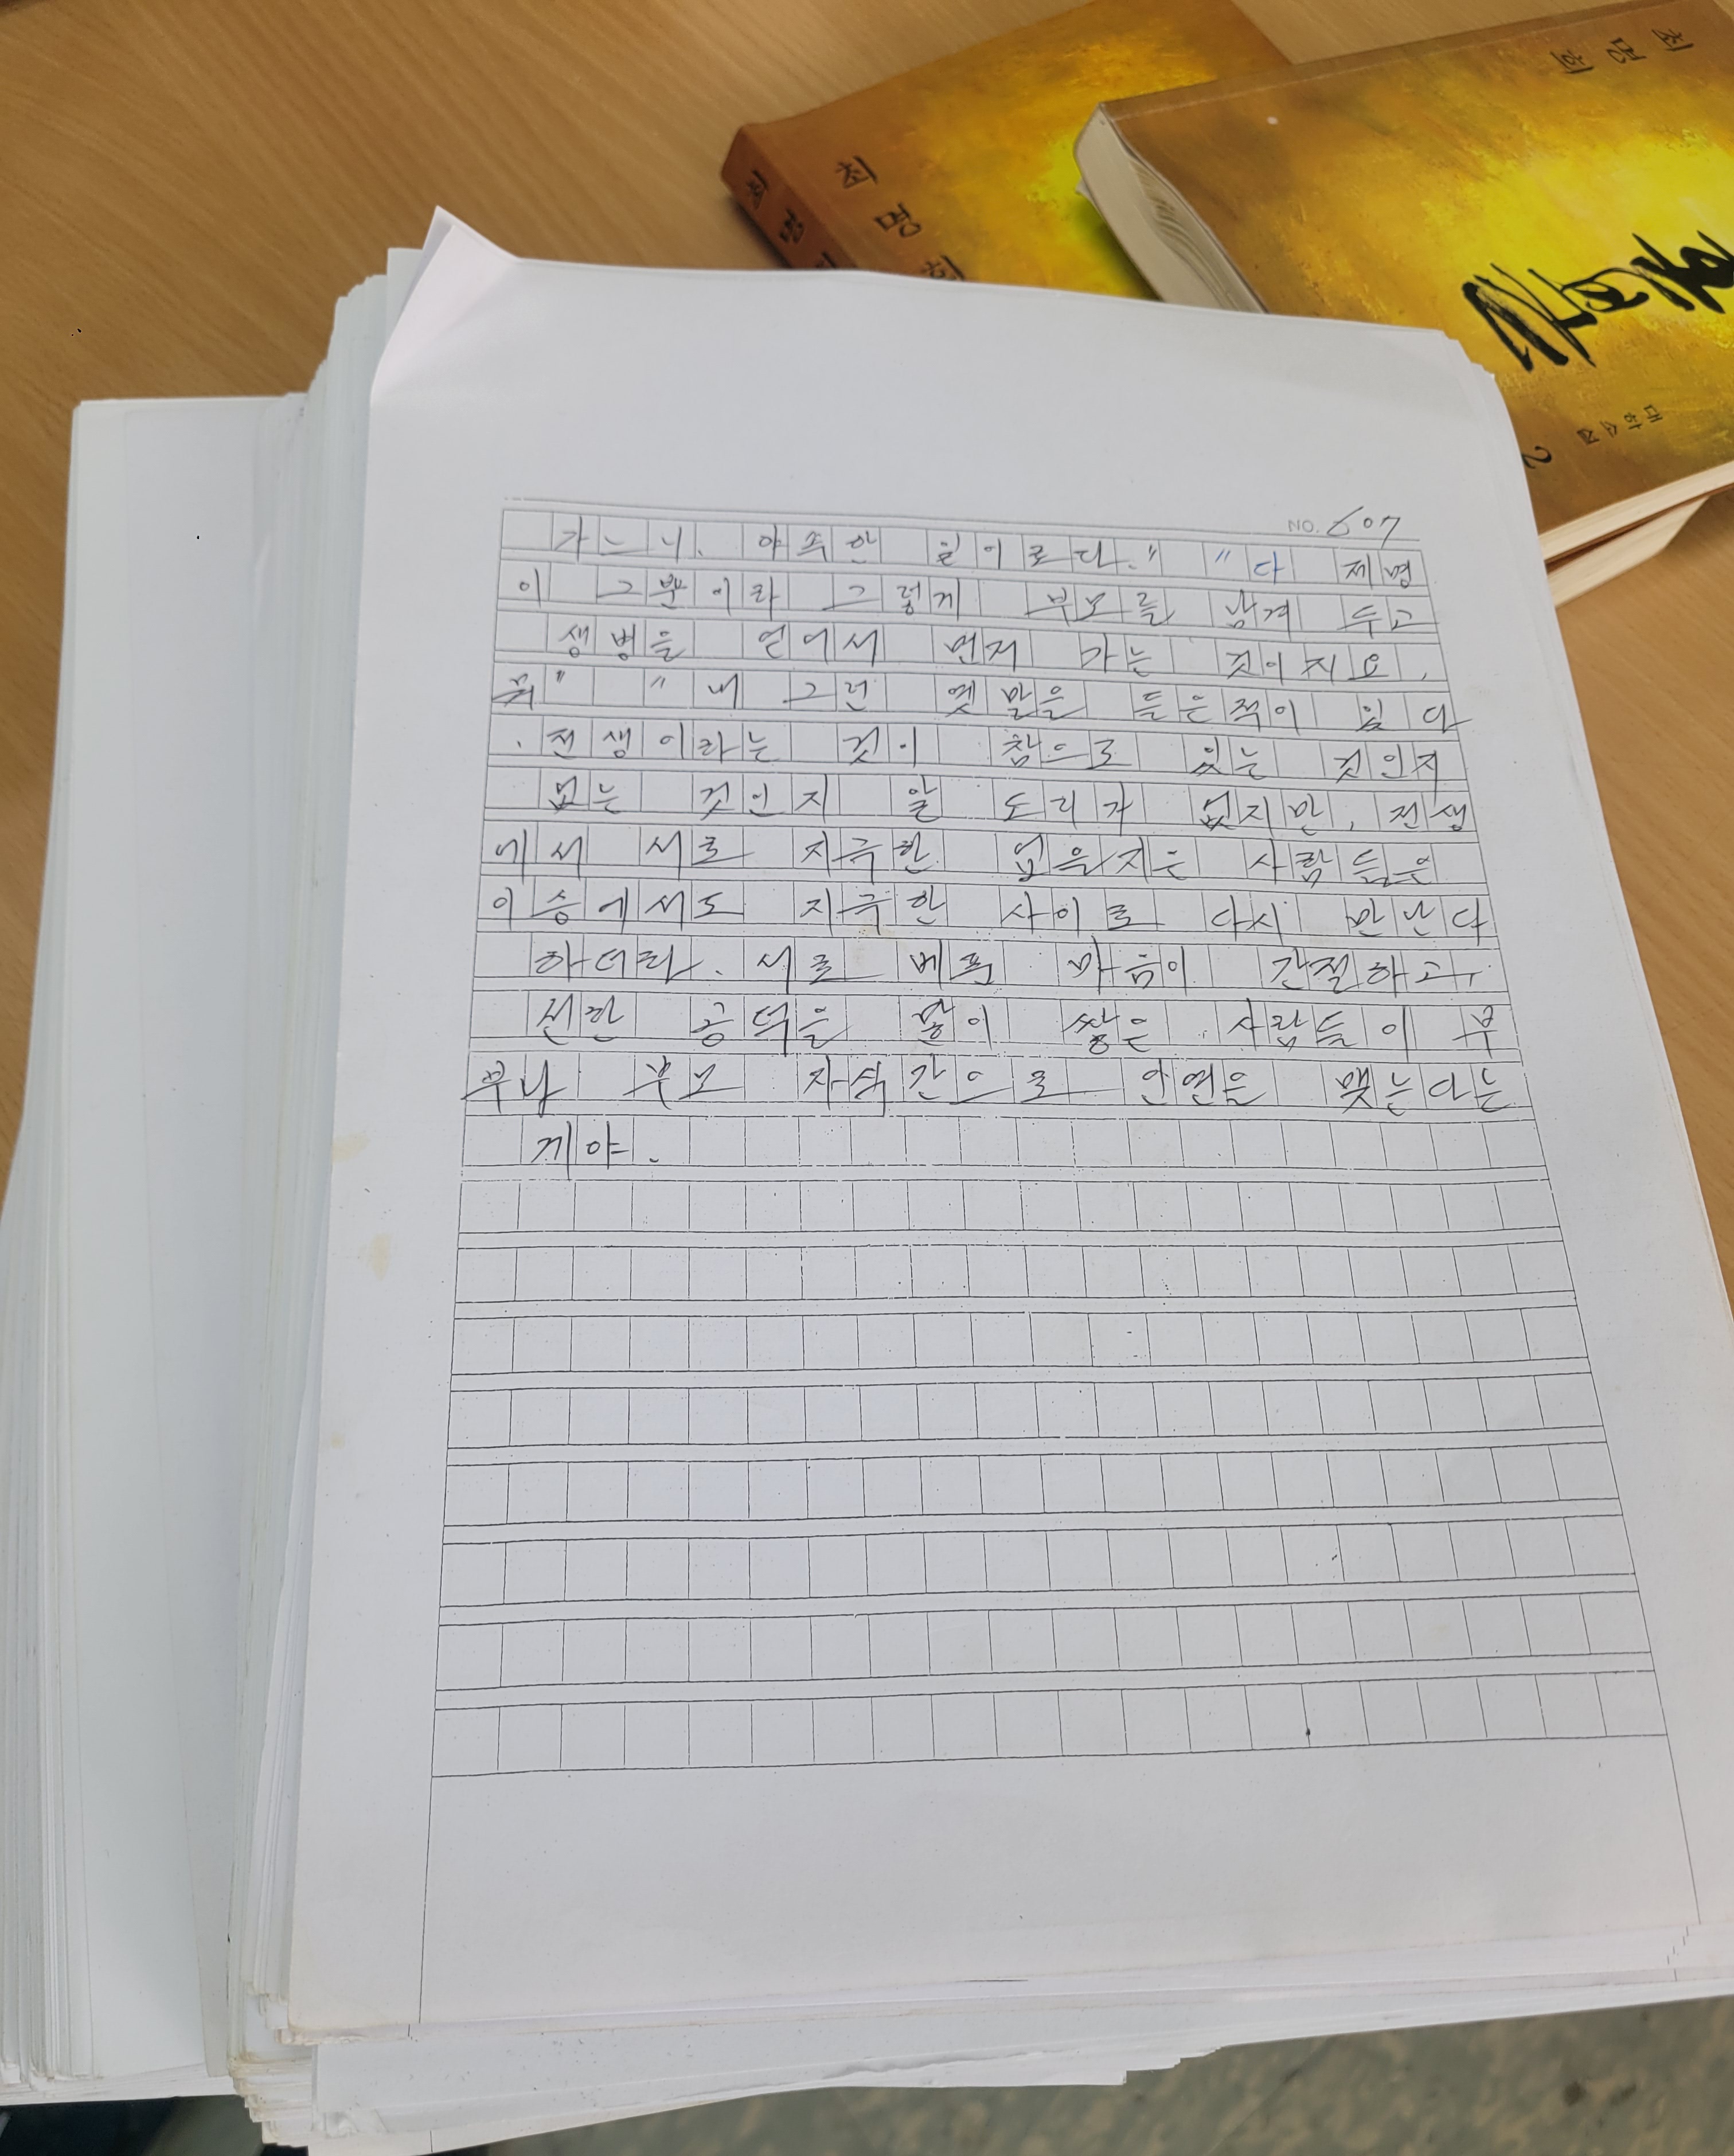 최명희
최명
최명희
혼불
대하소설
2
NO. 607
가느니. 야속한 일이로다." "다 제명
이 그뿐이라 그렇게 부모를 남겨 두고
생병을 얻어서 먼저 가는 것이지요,
뭐" "내 그런 옛말을 들은적이 있다
. 전생이라는 것이 참으로 있는 것인지
없는 것인지 알 도리가 없지만, 전생
에서 서로 지극한 업을지은 사람들은
이승에서도 지극한 사이로 다시 만난다
하더라. 서로 베푼 마음이 간절하고,
선한 공덕을 많이 쌓은 사람들이 부
부나 부모 자식간으로 인연을 맺는다는
게야.